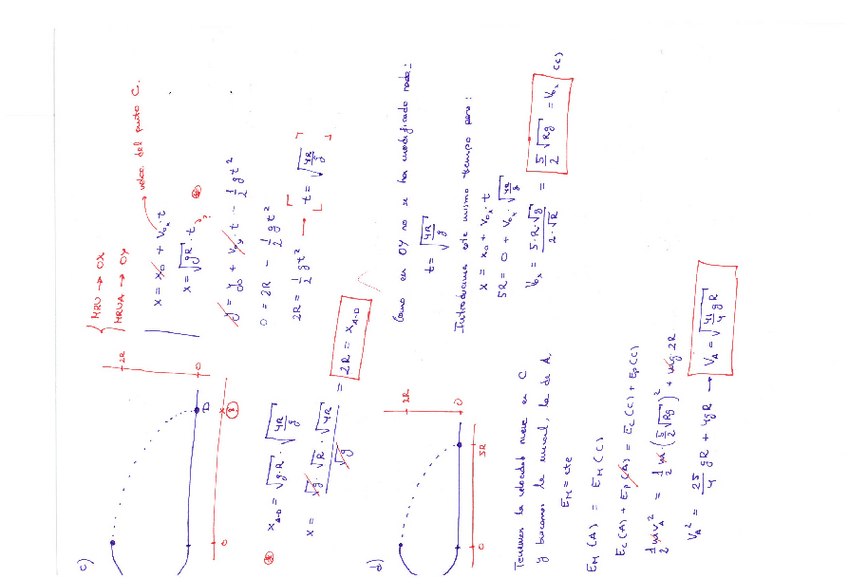 c)
MRU → OX
MRUA → OY
2R
0
D
0
X
?
x = x₀ + V₀ₓ · t → veloc. del punto C.
x = √gR · t ?
y = y₀ + V₀y · t - 1/2 g t²
0 = 2R - 1/2 g t²
2R = 1/2 g t² → [ t = √(4R/g) ]
x_A-D = √g·R · √(4R/g)
x = √g · √R · √4R / √g = 2R = x_A-D
d)
2R
0
0
5R
Como en OY no se ha modificado nada:
t = √(4R/g)
Introducimos este mismo tiempo para:
x = x₀ + V₀ₓ · t
5R = 0 + V₀ₓ · √(4R/g)
V₀ₓ = 5·R·√g / 2·√R = 5/2 √Rg = V₀ₓ (C)
Tenemos la velocidad nueva en C
y buscamos la inicial, la de A.
E_M = cte
E_M (A) = E_M (C)
E_C (A) + E_P (A) = E_C (C) + E_P (C)
1/2 m v_A² = 1/2 · m · (5/2 √Rg)² + m g · 2R
V_A² = 25/4 gR + 4gR → V_A = √(41/4 gR)